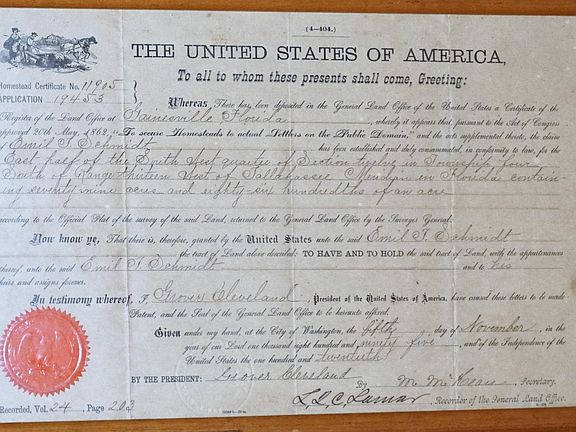 (4—404.)
THE UNITED STATES OF AMERICA,
To all to whom these presents shall come, Greeting:
Homestead Certificate No. 11905
APPLICATION 19453
Whereas, There has been deposited in the General Land Office of the United States a Certificate of the
Register of the Land Office at Gainesville Florida, whereby it appears that, pursuant to the Act of Congress
approved 20th May, 1862, "To secure Homesteads to actual Settlers on the Public Domain," and the acts supplemental thereto, the claim
Emil T. Schmidt has been established and duly consummated, in conformity to law, for the
East half of the South West quarter of Section twelve in Township four
South of Range thirteen West of Tallahassee Meridian in Florida contain-
ing seventy nine acres and eighty-six hundredths of an acre
according to the Official Plat of the survey of the said Land, returned to the General Land Office by the Surveyor General:
Now know ye, That there is, therefore, granted by the United States unto the said Emil T. Schmidt
the tract of Land above described: TO HAVE AND TO HOLD the said tract of Land, with the appurtenances
thereof, unto the said Emil T. Schmidt and to his
heirs and assigns forever.
In testimony whereof, I, Grover Cleveland, President of the United States of America, have caused these letters to be made
Patent, and the Seal of the General Land Office to be hereunto affixed.
Given under my hand, at the City of Washington, the fifth day of November, in the
year of our Lord one thousand eight hundred and ninety five, and of the Independence of the
United States the one hundred and twentieth
BY THE PRESIDENT: Grover Cleveland
By M. McKean, Secretary.
L.Q.C. Lamar, Recorder of the General Land Office.
Recorded, Vol. 24, Page 203